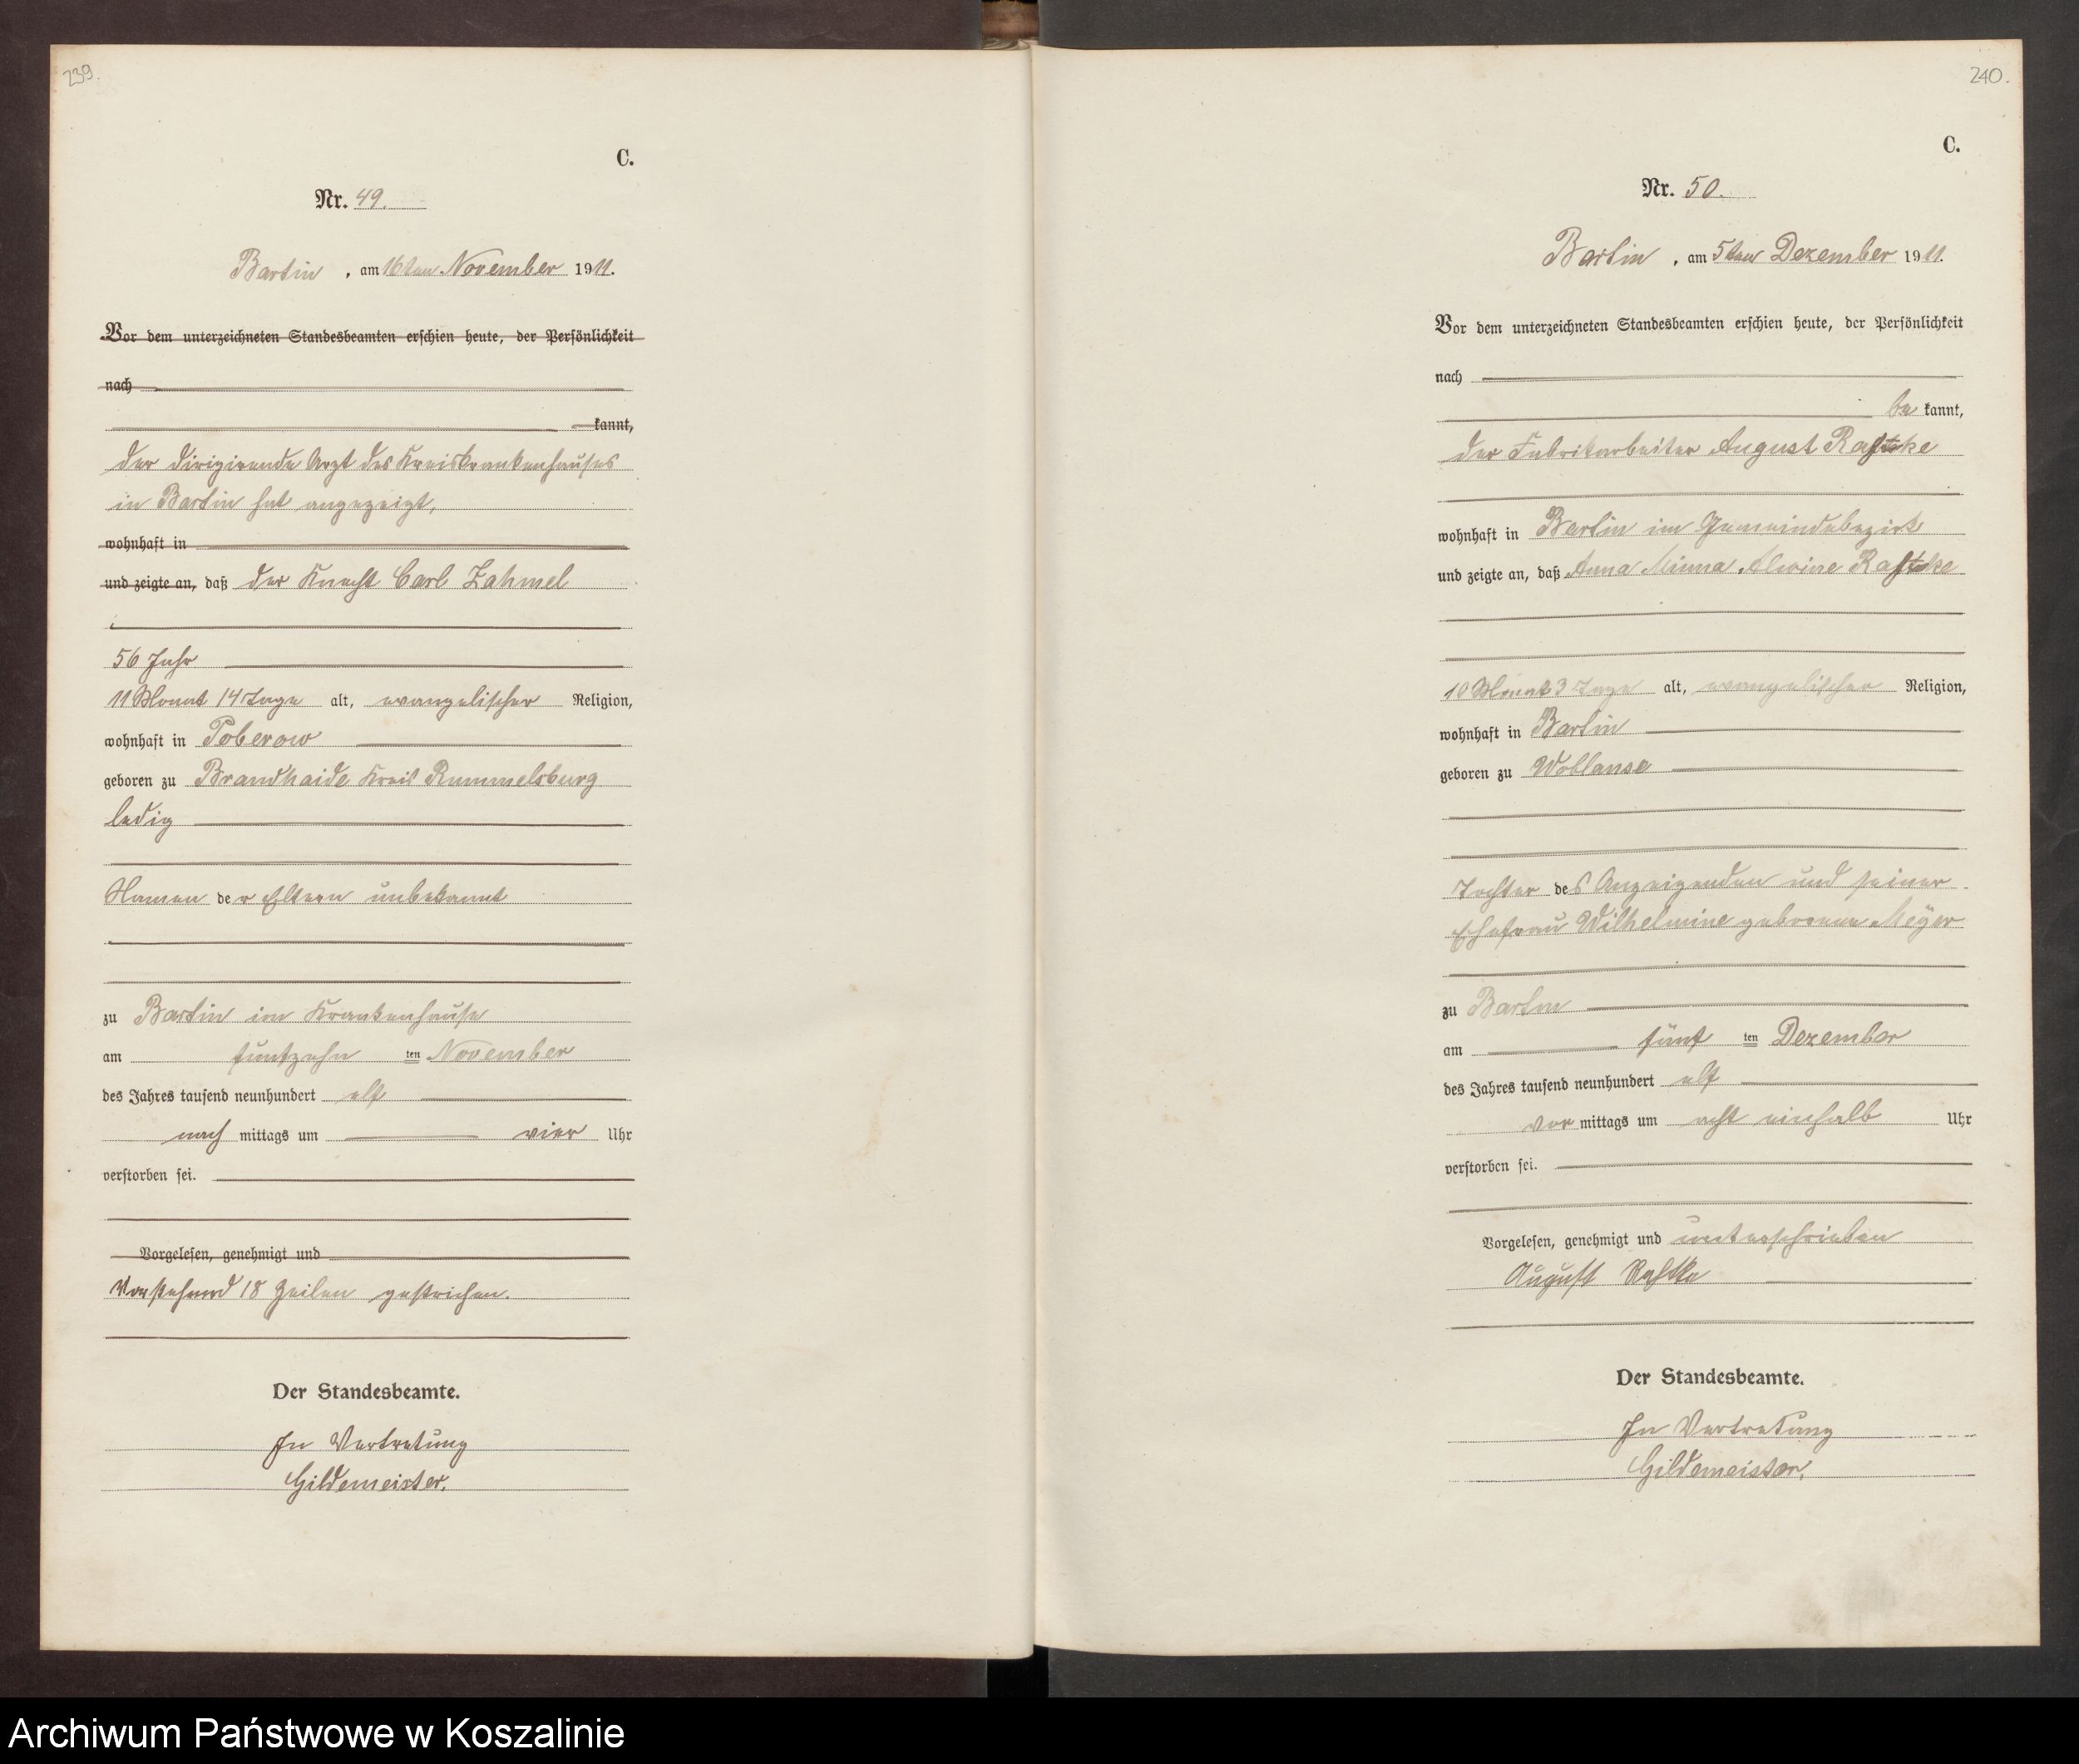 239.
C.
Nr. 49.
Bartin, am 16ten November 1911.
Vor dem unterzeichneten Standesbeamten erschien heute, der Persönlichkeit
nach
kannt,
der dirigirende Arzt des Kreiskrankenhauses
in Bartin hat angezeigt,
wohnhaft in
und zeigte an, daß der Knecht Carl Zahmel
56 Jahr
11 Monat 14 Tage alt, evangelischer Religion,
wohnhaft in Poberow
geboren zu Brandhaide Kreis Rummelsburg
ledig
Namen der Eltern unbekannt
zu Bartin im Krankenhause
am fünfzehn ten November
des Jahres tausend neunhundert elf
nach mittags um vier Uhr
verstorben sei.
Vorgelesen, genehmigt und
Vorstehend 18 Zeilen gestrichen.
Der Standesbeamte.
In Vertretung
Gildemeister.
240.
C.
Nr. 50.
Bartin, am 5ten Dezember 1911.
Vor dem unterzeichneten Standesbeamten erschien heute, der Persönlichkeit
nach
be kannt,
der Fabrikarbeiter August
wohnhaft in Bartin im Gemeindebezirk
und zeigte an, daß Anna Minna Alwine
10 Monat 3 Tage alt, evangelischer Religion,
wohnhaft in Bartin
geboren zu Woblanse
Tochter des Anzeigenden und seiner
Ehefrau Wilhelmine geborene Meÿer
zu Bartin
am fünf ten Dezember
des Jahres tausend neunhundert elf
vor mittags um acht einhalb Uhr
verstorben sei.
Vorgelesen, genehmigt und unterschrieben
August
Der Standesbeamte.
In Vertretung
Gildemeister.
Archiwum Państwowe w Koszalinie